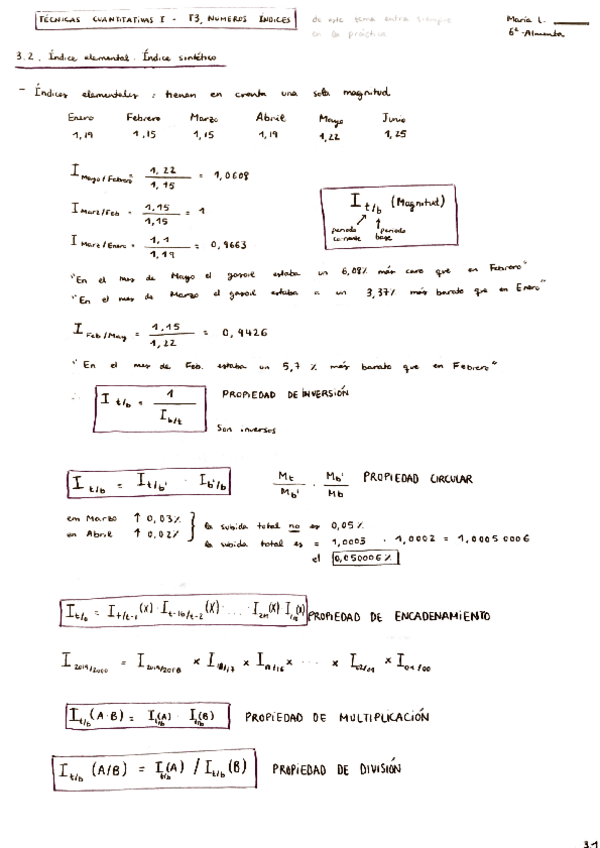 TÉCNICAS CUANTITATIVAS I - T3. NUMEROS ÍNDICES
de este tema entra siempre
en la práctica
María L.
3.2. Índice elemental. Índice sintético
- Índices elementales: tienen en cuenta una sola magnitud
Enero Febrero Marzo Abril Mayo Junio
1,19 1,15 1,15 1,19 1,22 1,25
I Mayo/Febrero = 1,22 / 1,15 = 1,0608
I Marz/Feb = 1,15 / 1,15 = 1
I Marz/Enero = 1,1 / 1,19 = 0,9663
I t/b (Magnitud)
periodo corriente
periodo base
"En el mes de Mayo el gasoil estaba un 6,08% más caro que en Febrero"
"En el mes de Marzo el gasoil estaba a un 3,37% más barato que en Enero"
I Feb/May = 1,15 / 1,22 = 0,9426
"En el mes de Feb. estaba un 5,7% más barato que en Febrero"
∴ I t/b = 1 / I b/t PROPIEDAD DE INVERSIÓN
Son inversos
I t/b = I t/b' · I b'/b Mt / Mb' · Mb' / Mb PROPIEDAD CIRCULAR
em Marzo ↑ 0,03%
en Abril ↑ 0,02%
la subida total no es 0,05%
la subida total es = 1,0003 · 1,0002 = 1,00050006
el 0,050006%
I t/0 = I t/t-1 (X) · I t-1/t-2 (X) · ... · I 2/1 (X) I 1/0 (X) PROPIEDAD DE ENCADENAMIENTO
I 2019/2000 = I 2019/2018 x I 18/17 x I 17/16 x ... x I 02/01 x I 01/00
I t/b (A·B) = I t/b (A) · I t/b (B) PROPIEDAD DE MULTIPLICACIÓN
I t/b (A/B) = I t/b (A) / I t/b (B) PROPIEDAD DE DIVISIÓN
3.1